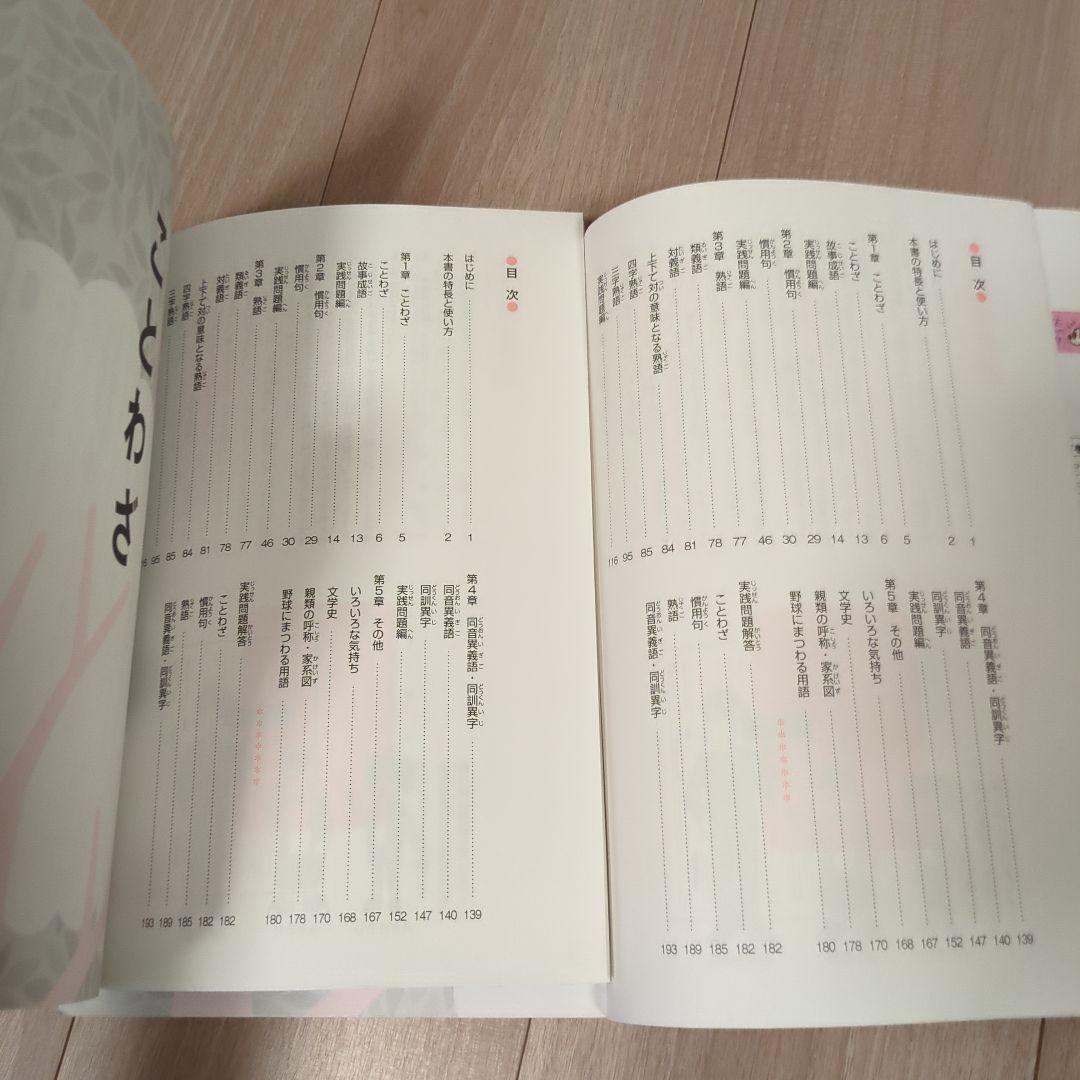 目次
はじめに 1
本書の特長と使い方 2
第1章 ことわざ 5
ことわざ 6
故事成語 13
実践問題編 14
第2章 慣用句 29
慣用句 30
実践問題編 46
第3章 熟語 77
類義語 78
対義語 81
上下で対の意味となる熟語 84
四字熟語 85
三字熟語 95
実践問題編 116
第4章 同音異義語・同訓異字 139
同音異義語 140
同訓異字 147
実践問題編 152
第5章 その他 167
いろいろな気持ち 168
文学史 170
親類の呼称・家系図 178
野球にまつわる用語 180
******
実践問題解答 182
ことわざ 182
慣用句 185
熟語 189
同音異義語・同訓異字 193
目次
はじめに 1
本書の特長と使い方 2
第1章 ことわざ 5
ことわざ 6
故事成語 13
実践問題編 14
第2章 慣用句 29
慣用句 30
実践問題編 46
第3章 熟語 77
類義語 78
対義語 81
上下で対の意味となる熟語 84
四字熟語 85
三字熟語 95
第4章 同音異義語・同訓異字 139
同音異義語 140
同訓異字 147
実践問題編 152
第5章 その他 167
いろいろな気持ち 168
文学史 170
親類の呼称・家系図 178
野球にまつわる用語 180
******
実践問題解答 182
ことわざ 182
慣用句 185
熟語 189
同音異義語・同訓異字 193
ことわざ